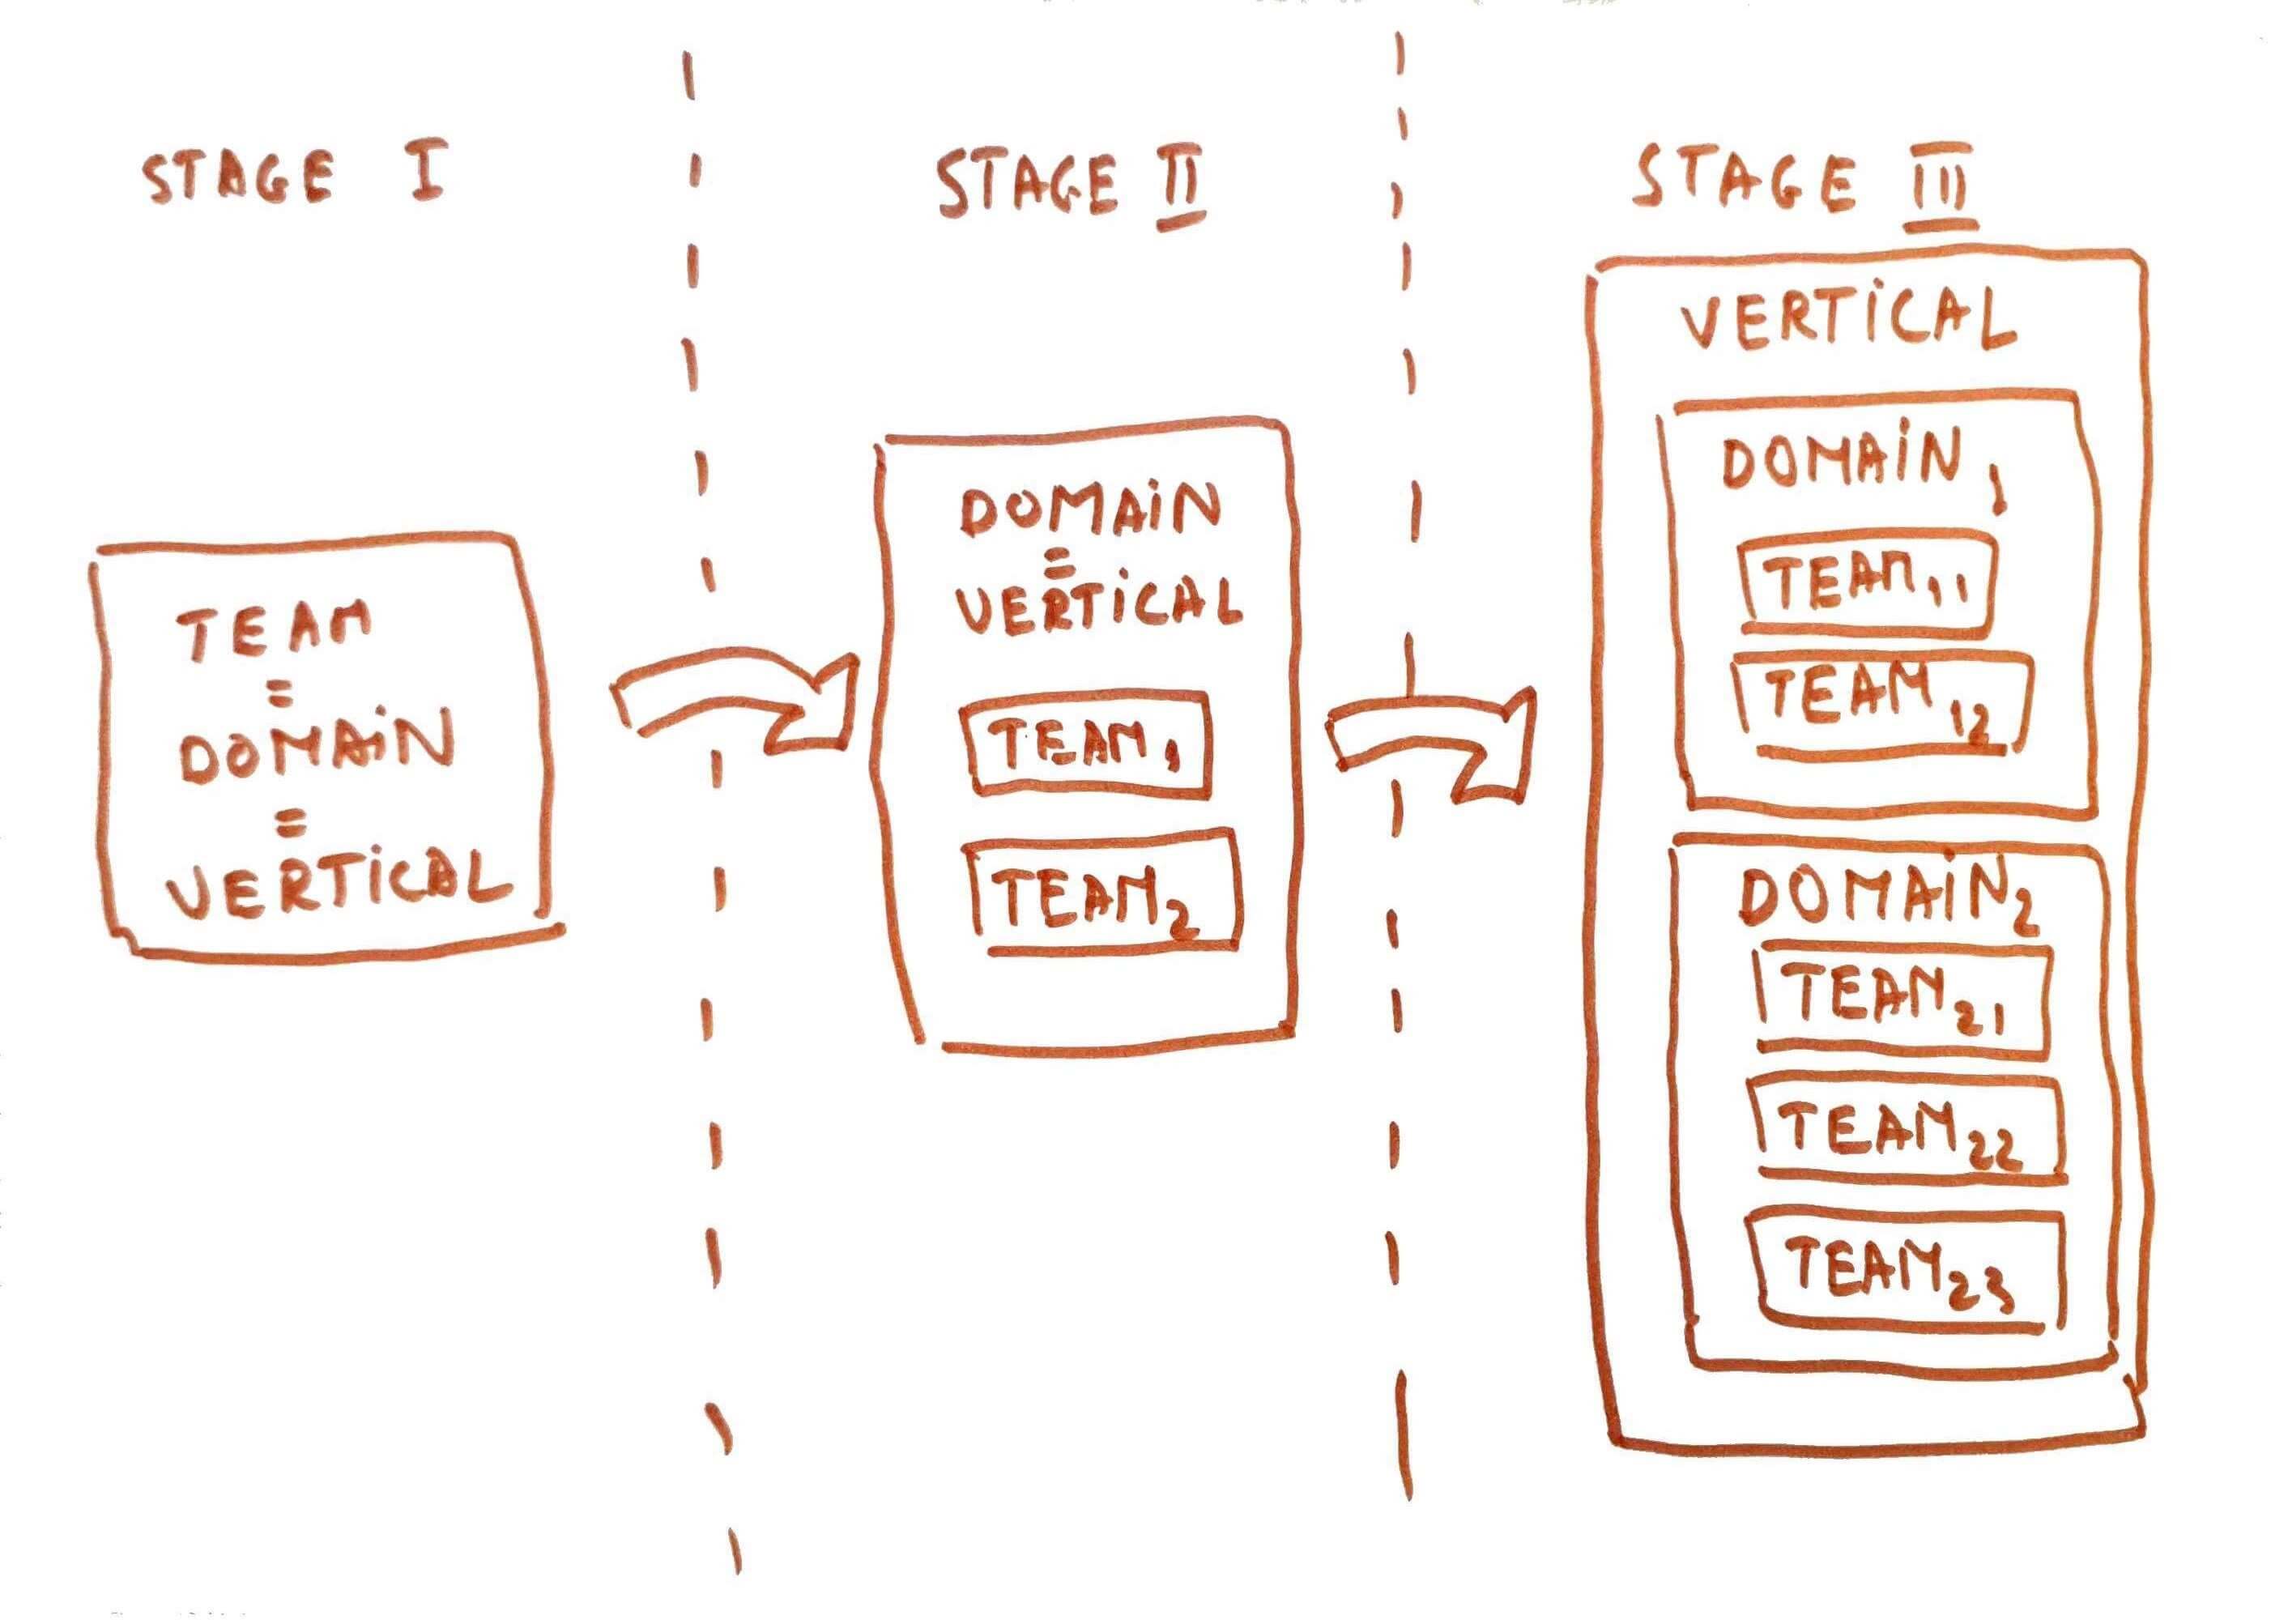 STAGE I
TEAM
=
DOMAIN
=
VERTICAL
STAGE II
DOMAIN
=
VERTICAL
TEAM₁
TEAM₂
STAGE III
VERTICAL
DOMAIN₁
TEAM₁₁
TEAM₁₂
DOMAIN₂
TEAM₂₁
TEAM₂₂
TEAM₂₃